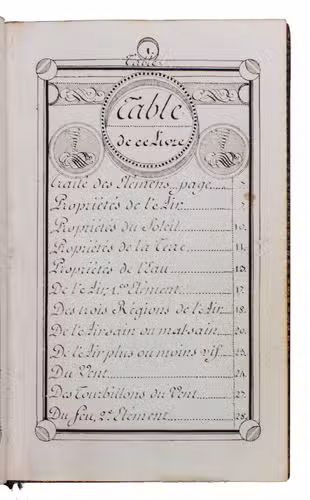 1.
Table
Table
de ce Livre
traité des Elémens page
Propriétés de l'Air
Propriétés du Soleil 10.
Propriétés de la Terre
Propriétés de l'Eau
De l'Air, 1er Elément 17.
Des trois Régions de l'Air 18.
De l'Air sain ou mal sain 20.
De l'Air plus ou moins vif 23.
Du Vent 24.
Des Tourbillons du Vent 27.
Du feu, 2e Elément 28.